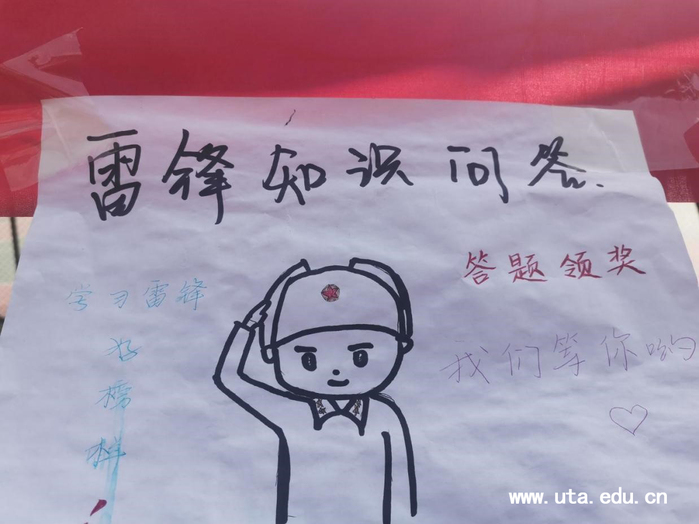 雷锋知识问答.
答题领奖
学习雷锋
好榜样
我们等你哟
www.uta.edu.cn